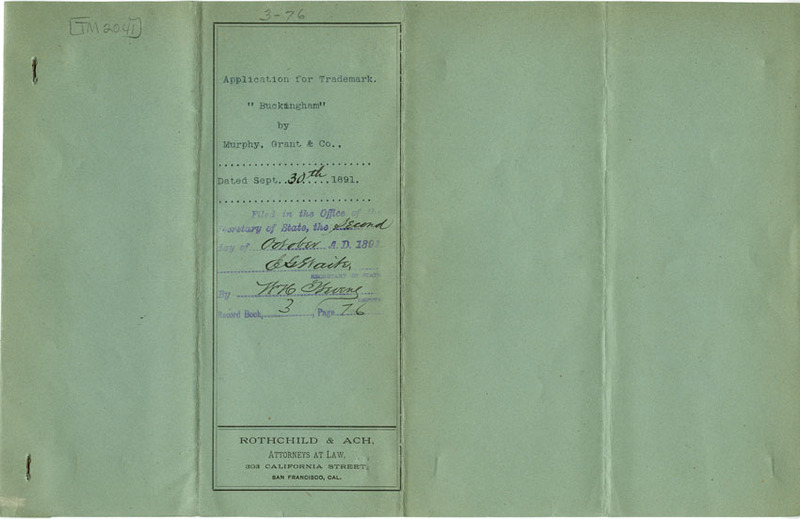 TM2041
3-76
Application for Trademark.
"Buckingham"
by
Murphy, Grant & Co.,
Dated Sept. 30th 1891.
Filed in the Office of the
Secretary of State, the Second
day of October A.D. 1891
E G Waite
SECRETARY OF STATE
By W H Stevens
DEPUTY
Record Book, 3, Page 76
ROTHCHILD & ACH,
ATTORNEYS AT LAW,
303 CALIFORNIA STREET,
SAN FRANCISCO, CAL.